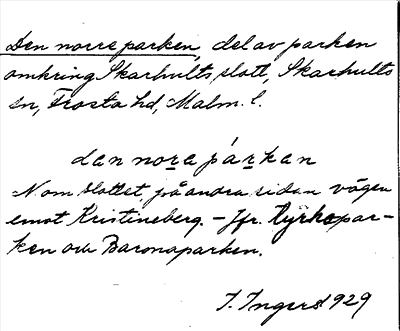 Den norre parken, del av parken
omkring Skarhults slott, Skarhults
sn, Frosta hd, Malm. l.
dan nora párkan
N om slottet, på andra sidan vägen
emot Kristineberg. – Jfr. Kyrkopar-
ken och Baronaparken.
I. Ingers 1929